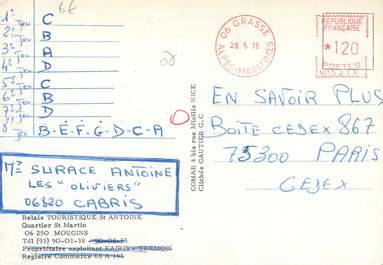 6€
1er jeu C
2e jeu B
3e jeu A
4e jeu D
5e jeu C
6e jeu B
7e jeu D
8e jeu B-E-F-G-D-C-A
06 GRASSE
28 5 79
ALPES-MARITIMES
REPUBLIQUE
FRANÇAISE
*120
POSTES
COMAB 4 bis rue Miollis NICE
Clichés GAUTIER G,C
EN SAVOIR PLUS
BOÎTE CEDEX 867
75300 PARIS
CEDEX
Mr SURACE ANTOINE
LES "OLIVIERS"
06820 CABRIS
Relais TOURISTIQUE St ANTOINE
Quartier St Martin
06 250 MOUGINS
Tél (93) 90-01-38
Propriétaire exploitant KAIRIS - TREMOIS
Registre Commerce 68 A